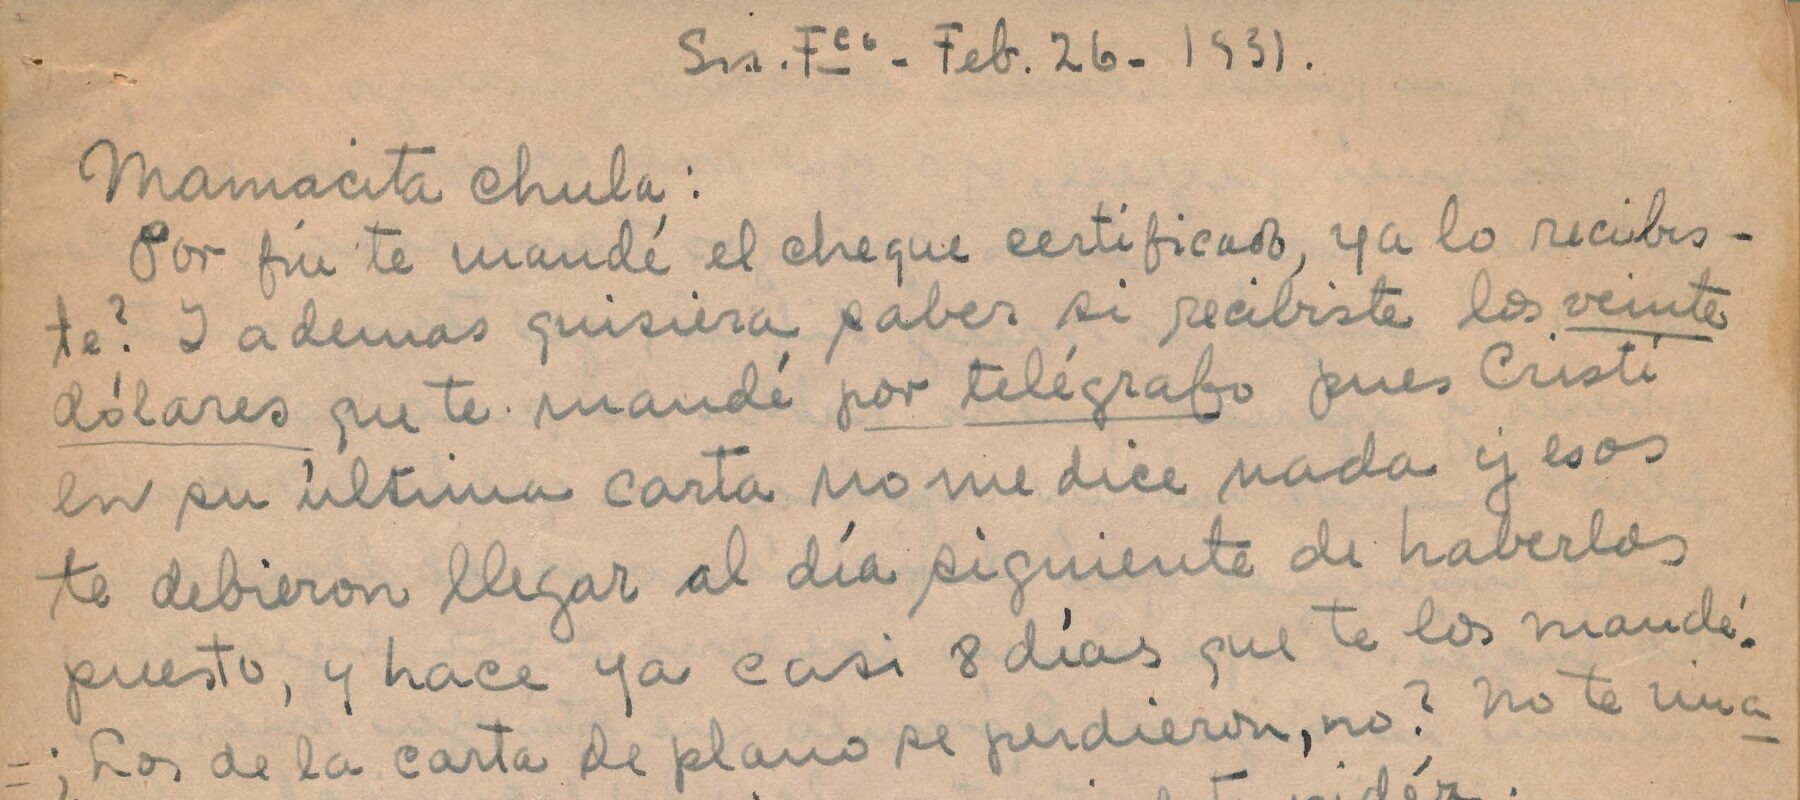 Sn. Fco - Feb. 26 - 1931.
Mamacita chula:
Por fin te mandé el cheque certificado, ya lo recibis-
te? I ademas quisiera saber si recibiste los veinte
dólares que te mandé por telégrafo pues Cristi
en su última carta no me dice nada y esos
te debieron llegar al día siguiente de haberlos
puesto, y hace ya casi 8 días que te los mandé.
- ¿Los de la carta de plano se perdieron, no? No te